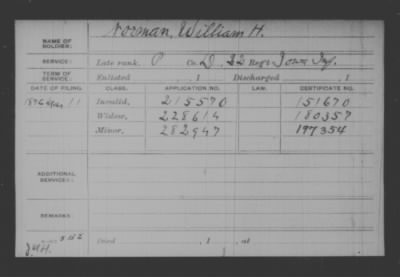 Norman, William H.
NAME OF SOLDIER:
SERVICE: Late rank, P Co. D, 22 Reg't Iowa Inf.
TERM OF SERVICE: Enlisted , 1 Discharged , 1
DATE OF FILING. CLASS. APPLICATION NO. LAW. CERTIFICATE NO.
1876 11 Invalid, 215570 151670
Widow, 228614 180357
Minor, 282947 197354
ADDITIONAL SERVICES:
REMARKS:
Died , 1 , at